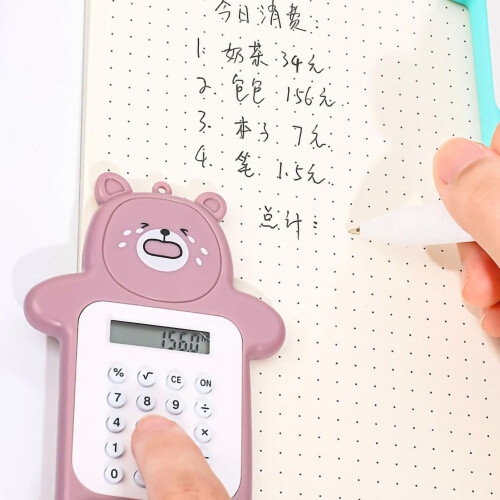 今日消费:
1. 奶茶 34元
2. 包包 156元
3. 本子 7元
4. 笔 1.5元
总计:
156.0
% √ CE ON
7 8 9 ÷
4 ×
1 −
0